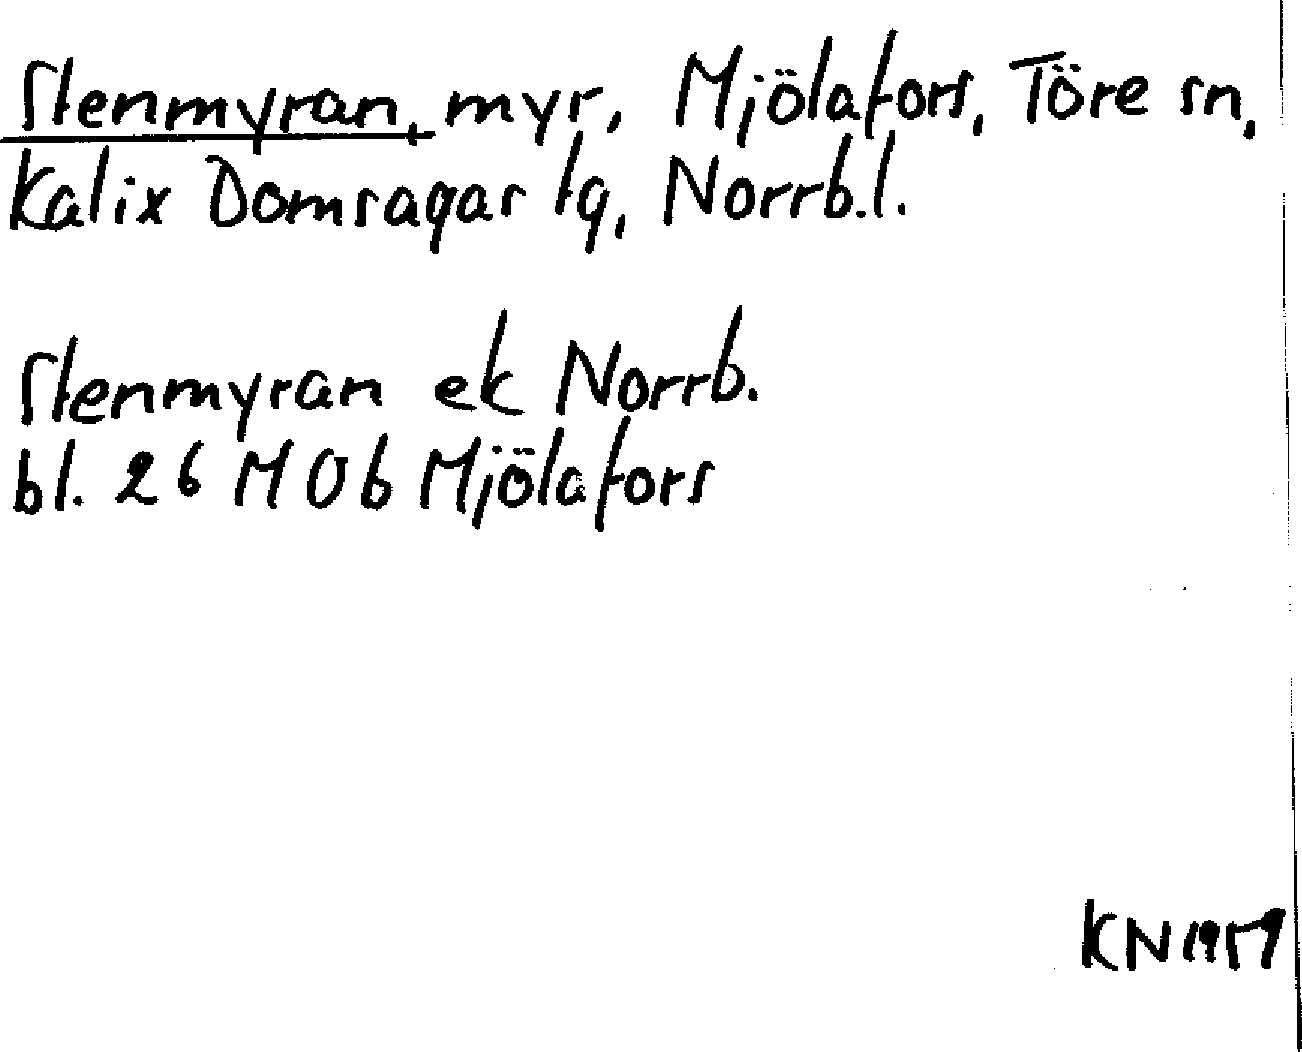 Stenmyran, myr, Mjölafors, Töre sn,
Kalix Domsagas tg, Norrb.l.
Stenmyran ek Norrb.
bl. 26 M 0b Mjölafors
KN 1959